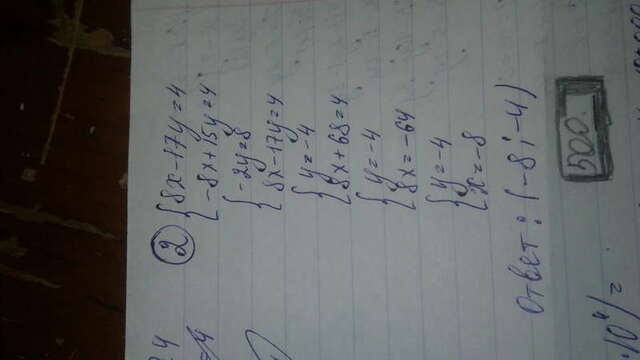 ② { 8x-17y=4
-8x+15y=4
{ -2y=8
8x-17y=4
{ y=-4
8x+68=4
{ y=-4
8x=-64
{ y=-4
x=-8
Ответ: (-8; -4)
500.